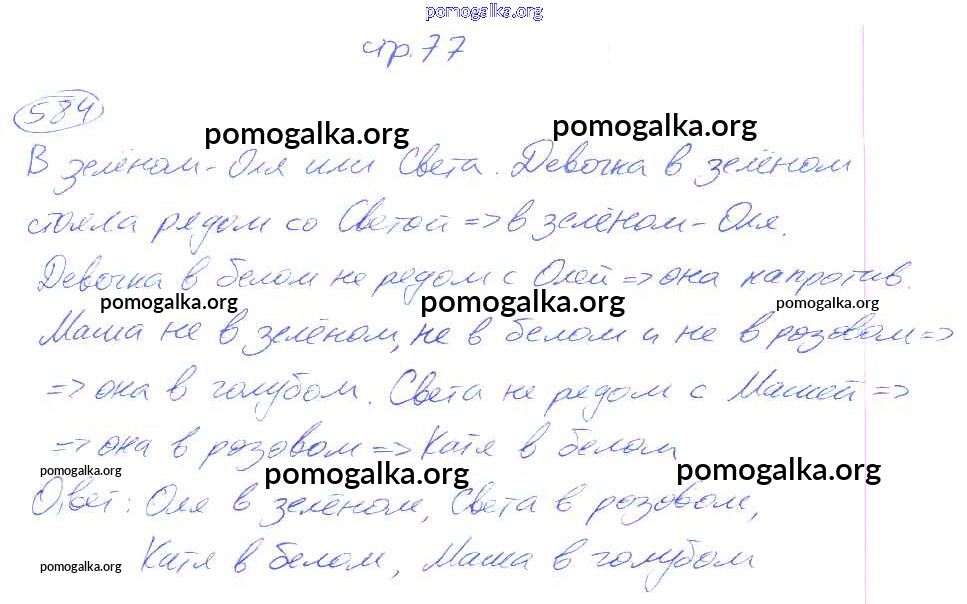 pomogalka.org
стр. 77
584
pomogalka.org pomogalka.org
В зелёном - Оля или Света. Девочка в зелёном
стояла рядом со Светой => в зелёном - Оля.
Девочка в белом не рядом с Олей => она напротив.
pomogalka.org pomogalka.org pomogalka.org
Маша не в зелёном, не в белом и не в розовом =>
=> она в голубом. Света не рядом с Машей =>
=> она в розовом => Катя в белом
pomogalka.org pomogalka.org pomogalka.org
Ответ: Оля в зелёном, Света в розовом,
Катя в белом, Маша в голубом
pomogalka.org